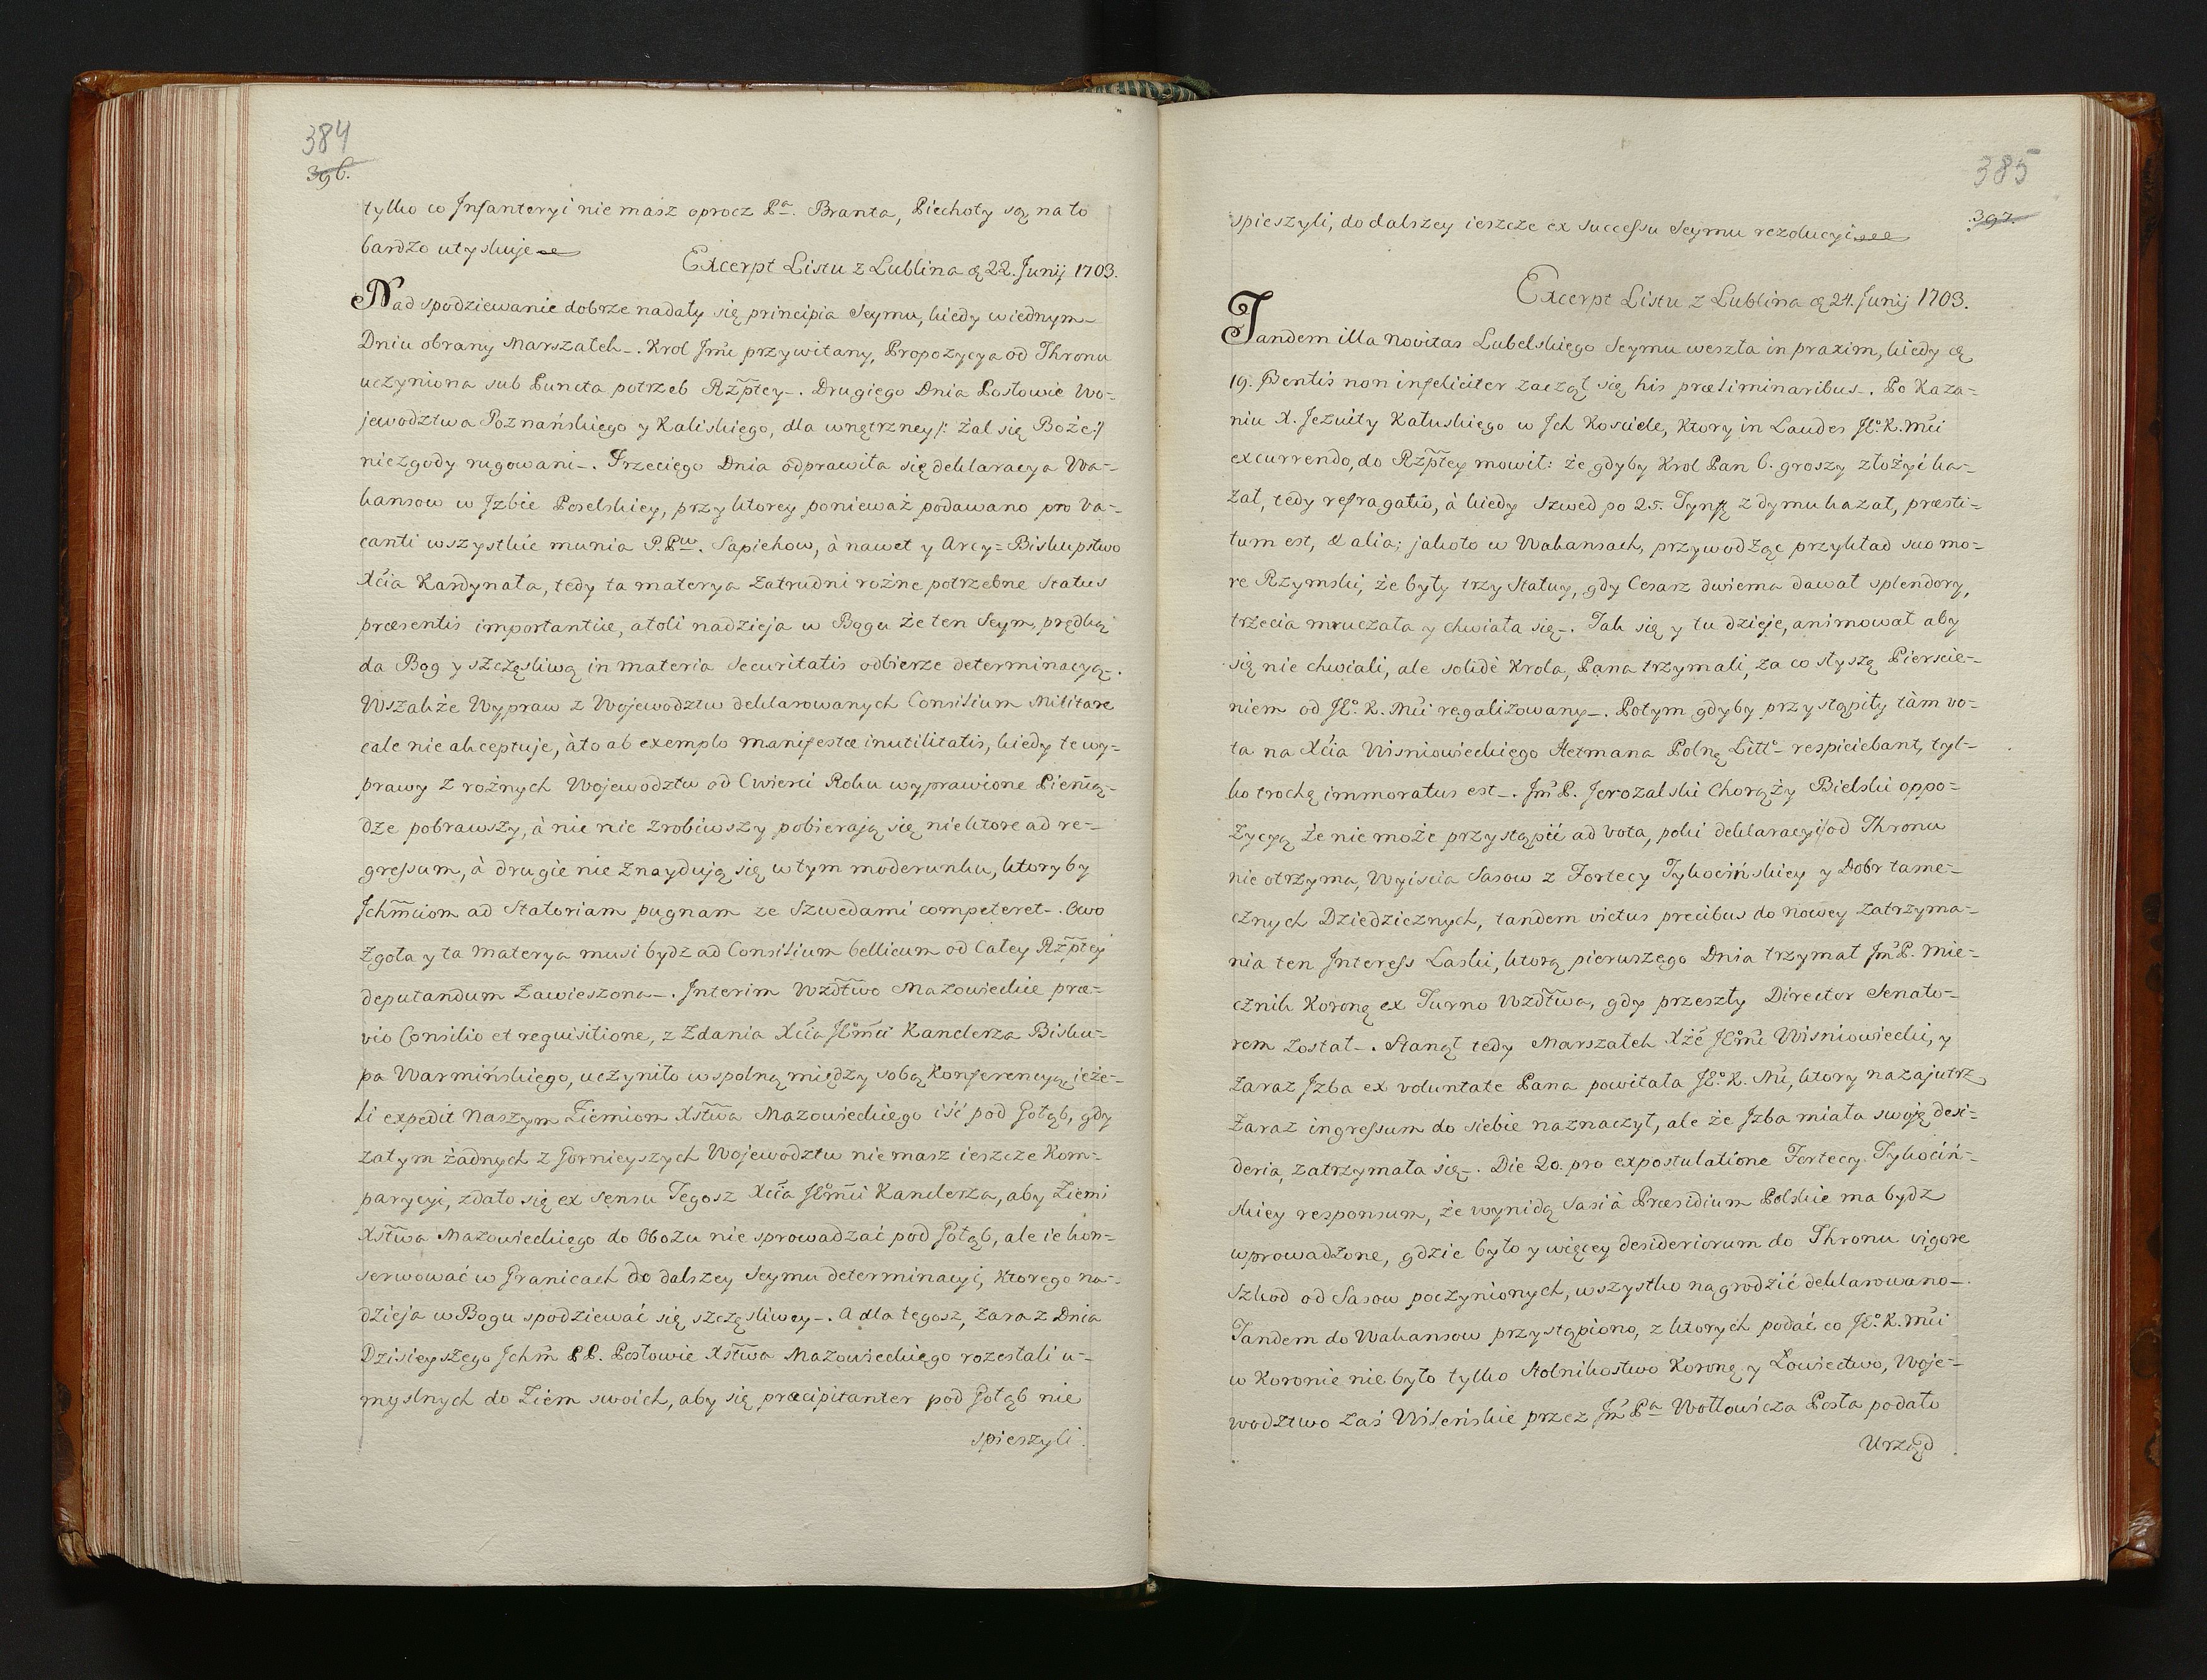 384
396.
tylko co Infanteryi nie masz oprocz Pa. Branta, Piechoty są na to
bardzo utyskuje
Excerpt Listu z Lublina d. 22. Junij 1703.
Nad spodziewanie dobrze nadały się principia Seymu, kiedy w iednym
Dniu obrany Marszałek. Krol Jmć przywitany, Propozycya od Thronu
uczyniona sub Puncta potrzeb Rzptey. Drugiego Dnia Posłowie Wo=
jewodztwa Poznańskiego y Kaliskiego, dla wnętrzney /: żal się Boże :/
niezgody rugowani. Trzeciego Dnia odprawiła się deklaracya Wa=
kansow w Jzbie Poselskiey, przy ktorey ponieważ podawano pro va=
canti wszystkie munia P. Pw. Sapiehow, à nawet y Arcy=Biskupstwo
Xcia Kardynała, tedy ta materya zatrudni rożne potrzebne Status
præsentis importantiæ, atoli nadzieja w Bogu że ten Seym prędką
da Bog y szczęsliwą in materia Securitatis odbierze determinacyą.
Wszakże Wypraw z Wojewodztw deklarowanych Consilium Militare
cale nie akceptuje, à to ab exemplo manifestæ inutilitatis, kiedy te wy=
prawy z rożnych Wojewodztw od Cwierci Roku wyprawione Pienią=
dze pobrawszy, à nic nie zrobiwszy pobierają się niektore ad re=
gressum, à drugie nie znaydują się w tym moderunku, ktory by
Jchmciom ad Statoriam pugnam ze Szwedami competeret. Owo
zgoła y ta materya musi bydz ad Consilium bellicum od Całey Rzptey
deputandum zawieszona. Interim Wzdztwo Mazowieckie præ=
vio Consilio et requisitione, z zdania Xcia JEomći Kanclerza Bisku=
pa Warmińskiego, uczyniło wspolną między sobą Konferencyą ieże=
li expedit Naszym Ziemiom Xstwa Mazowieckiego iść pod Gołąb, gdy
zatym żadnych z Gornieyszych Wojewodztw nie masz ieszcze Kom=
parycyi, zdało się ex sensu Tegosz Xcia JEomći Kanclerza, aby Ziemi
Xstwa Mazowieckiego do Obozu nie sprowadzać pod Gołąb, ale ie kon=
serwować w Granicach do dalszey Seymu determinacyi, ktorego na=
dzieja w Bogu spodziewać się szczęsliwey. A dla tegosz, zaraz Dnia
Dzisieyszego Jchm PP. Posłowie Xstwa Mazowieckiego rozesłali u=
myslnych do Ziem swoich, aby się præcipitanter pod Gołąb nie
spieszyli
385
397.
spieszyli, do dalszey ieszcze ex successu Seymu rezolucyi
Excerpt Listu z Lublina d. 24. Junij 1703.
Tandem illa novitas Lubelskiego Seymu weszła in praxim, kiedy d.
19. Præsentis non infeliciter zaczął się his præliminaribus. Po Kaza=
niu X. Jezuity Kałuskiego w Jch Kosciele, ktory in Laudes JEo. K. Mći
excurrendo, do Rzptey mowił: że gdyby Krol Pan 6. groszy złożyć ka=
zał, tedy refragatio, à kiedy Szwed po 25. Tynff z dymu kazał, præsti=
tum est, & alia; jakoto w Wakansach, przywodząc przykład suo mo=
re Rzymski, że były trzy Statuy, gdy Cesarz dwiema dawał splendory,
trzecia mruczała y chwiała się. Tak się y tu dzieje, animował aby
się nie chwiali, ale solidè Krola, Pana trzymali, za co słyszę Pierscie=
niem od JEo. K. Mći regalizowany. Potym gdyby przystąpiły tàm vo=
ta na Xcia Wisniowieckiego Hetmana Polng Litto respiciebant, tyl=
ko trochę immoratus est. Jm P. Jerozalski Chorąży Bielski oppo=
zycyą że nie może przystąpić ad vota, poki deklaracyi od Thronu
nie otrzyma, wyiscia Sasow z Fortecy Tykocińskiey y Dobr tame=
cznych Dziedzicznych, tandem victus precibus do nowey zatrzyma=
nia ten Interess Laski, ktorą pierwszego Dnia trzymał Jm P. Mie=
cznik Korong ex Turno Wzdztwa, gdy przeszły Director Senato=
rem został. Stanął tedy Marszałek Xże JEmć Wisniowiecki, y
zaraz Jzba ex voluntate Pana powitała JEo. K. Mć, ktory nazajutrz
zaraz ingressum do siebie naznaczył, ale że Jzba miała swoje desi=
deria, zatrzymała się. Die 20. pro expostulatione Fortecy Tykociń=
skiey responsum, że wynidą Sasi à Præsidium Polskie ma bydz
wprowadzone, gdzie było y więcey desideriorum do Thronu vigore
szkod od Sasow poczynionych, wszystko nagrodzić deklarowano.
Tandem do Wakansow przystąpiono, z ktorych podać co JEo. K. Mći
w Koronie nie było tylko Stolnikostwo Korong y Łowiectwo, Woje=
wodztwo zaś Wileńskie przez Jm Pa Wołłowicza Posła podało
Urząd